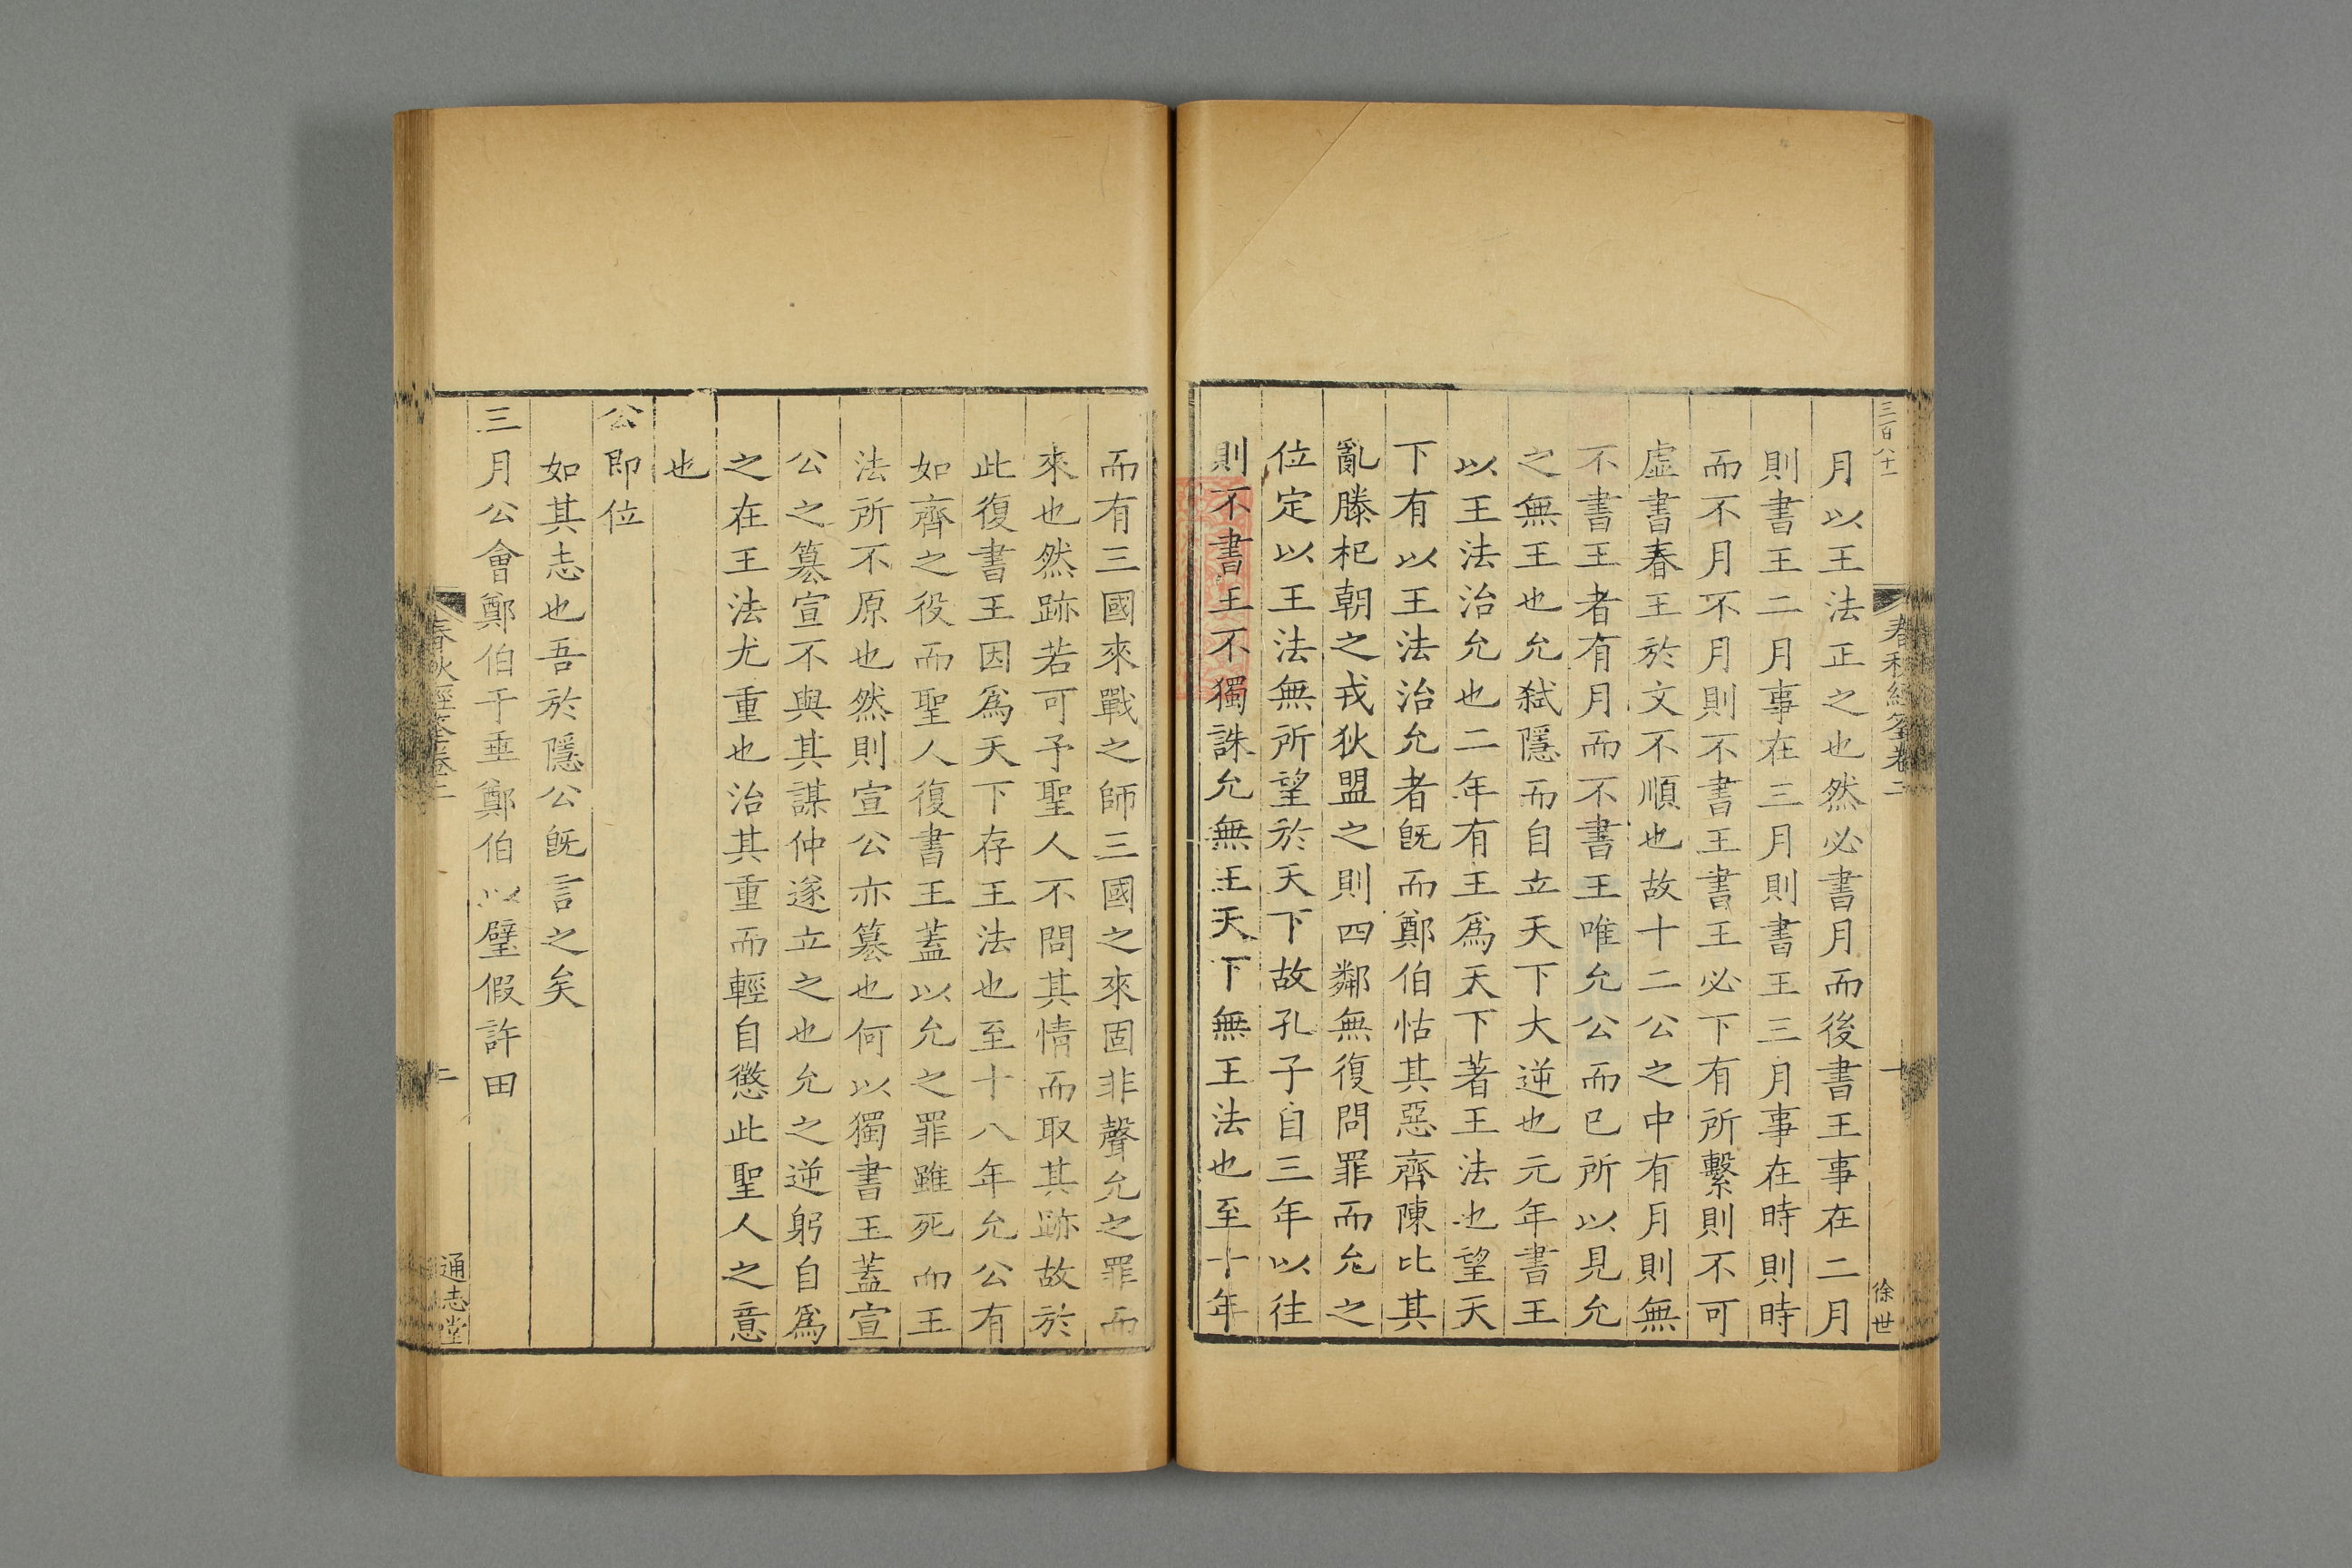 三百八十一
春秋經筌卷二
徐世
月以王法正之也然必書月而後書王事在二月
則書王二月事在三月則書王三月事在時則時
而不月不月則不書王書王必下有所繫則不可
虛書春王於文不順也故十二公之中有月則無
不書王者有月而不書王唯允公而已所以見允
之無王也允弑隱而自立天下大逆也元年書王
以王法治允也二年有王爲天下著王法也望天
下有以王法治允者旣而鄭伯怙其惡齊陳比其
亂滕杞朝之戎狄盟之則四鄰無復問罪而允之
位定以王法無所望於天下故孔子自三年以往
則不書王不獨誅允無王天下無王法也至十年
而有三國來戰之師三國之來固非聲允之罪而
來也然跡若可予聖人不問其情而取其跡故於
此復書王因爲天下存王法也至十八年允公有
如齊之役而聖人復書王蓋以允之罪雖死而王
法所不原也然則宣公亦篡也何以獨書王蓋宣
公之篡宣不與其謀仲遂立之也允之逆躬自爲
之在王法尤重也治其重而輕自懲此聖人之意
也
公即位
如其志也吾於隱公旣言之矣
三月公會鄭伯于垂鄭伯以璧假許田
春秋經筌卷二
二
通志堂